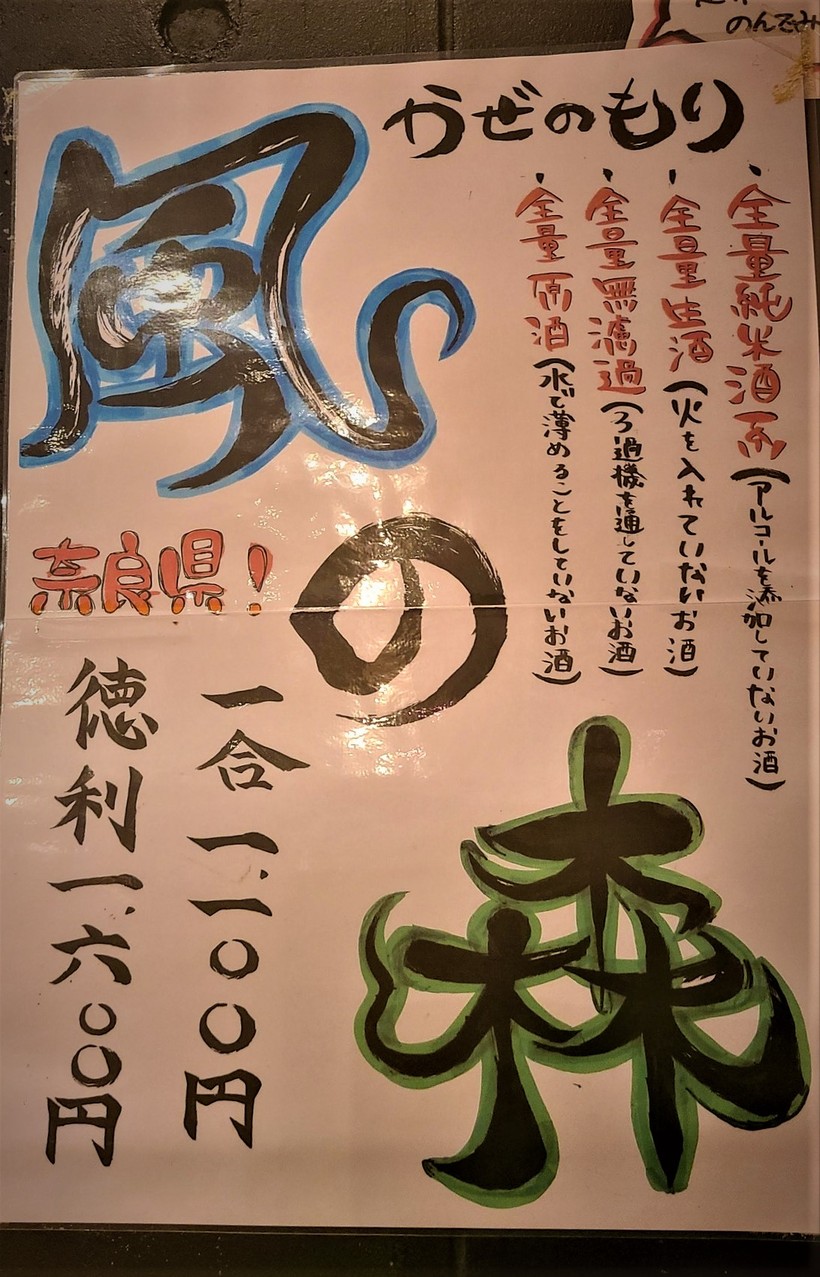 のんでみ
かぜのもり
風の森
・全量純米酒系(アルコールを添加していないお酒)
・全量生酒(火を入れていないお酒)
・全量無濾過(ろ過機を通していないお酒)
・全量原酒(水で薄めることをしていないお酒)
奈良県!
一合 一、一〇〇円
徳利 一、六〇〇円